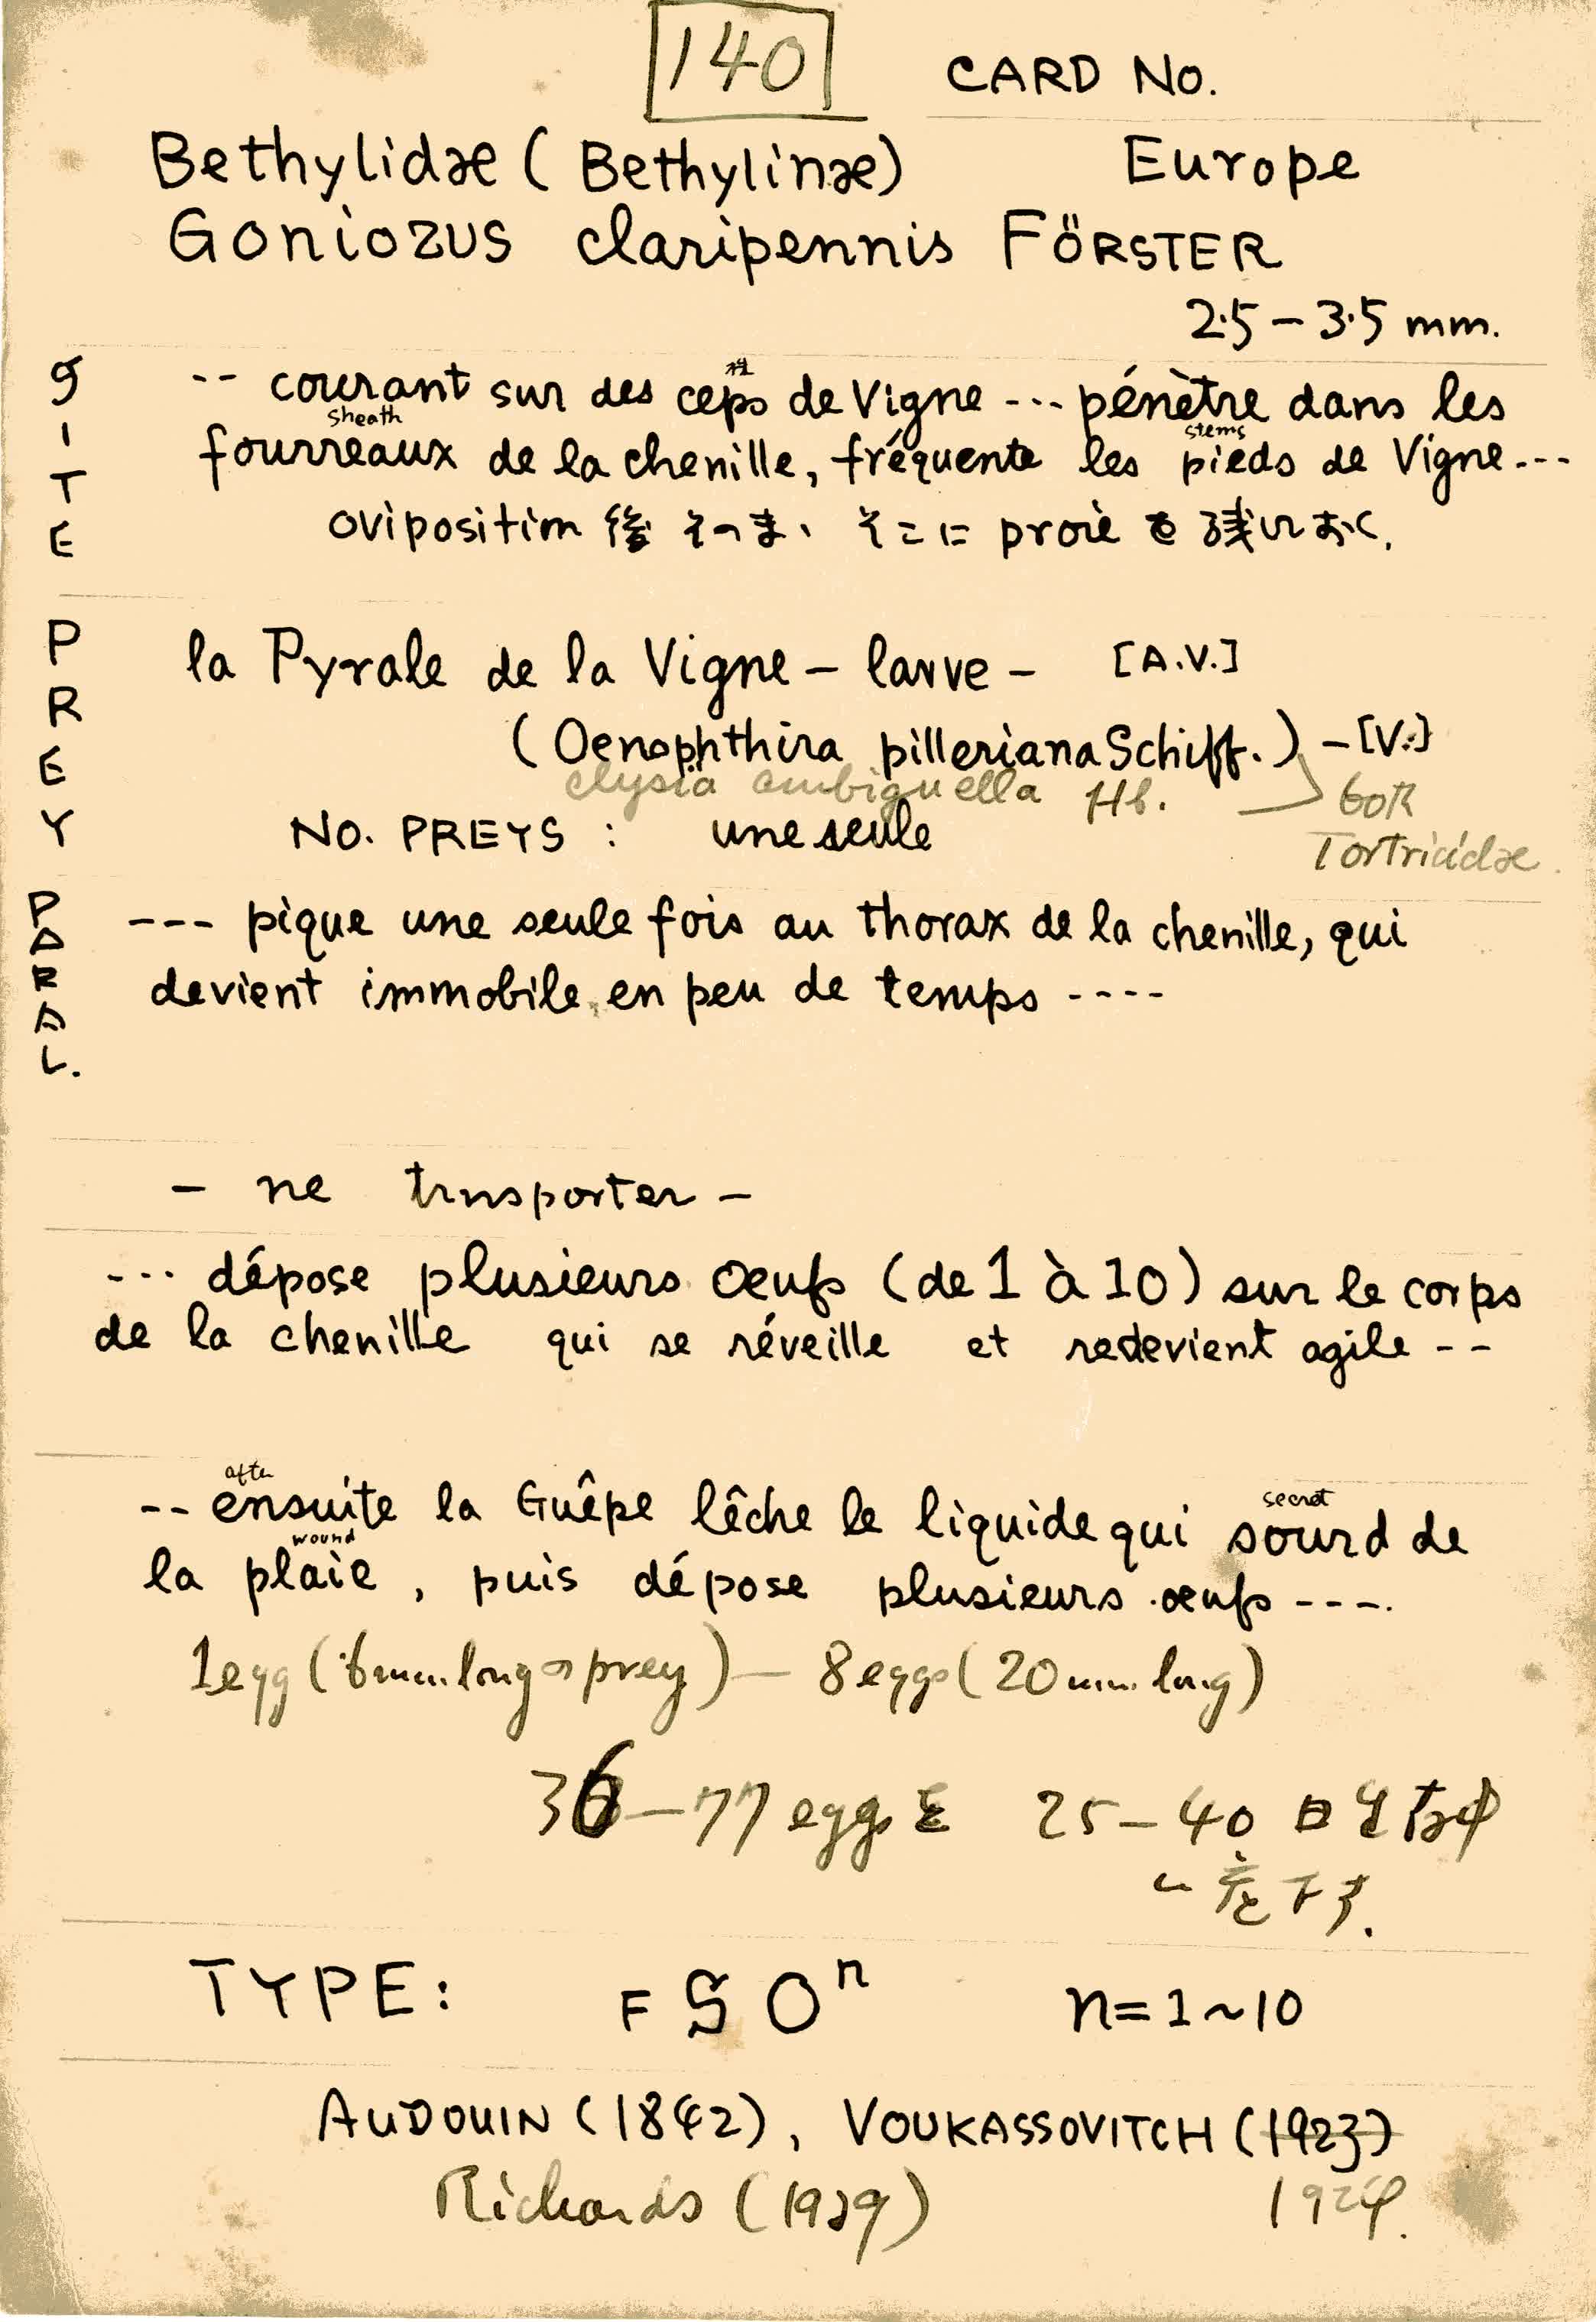 140 CARD No.
Bethylidæ ( Bethylinæ) Europe
Goniozus claripennis FÖRSTER
2.5 – 3.5 mm.
SITE
-- courant sur des ceps de Vigne --- pénètre dans les
sheath
stems
fourreaux de la chenille, fréquente les pieds de Vigne ---
oviposition 後 そのまゝ そこに proie を残しておく.
PREY
la Pyrale de la Vigne – larve – [A.V.]
(Oenophthira pilleriana Schiff.) – [V.]
clysia ambiguella Hb. both
NO. PREYS : une seule Tortricidæ.
PARAL.
--- pique une seule fois au thorax de la chenille, qui
devient immobile en peu de temps ----
– ne trnsporter –
--- dépose plusieurs oeufs (de 1 à 10) sur le corps
de la chenille qui se réveille et redevient agile --
after
secret
-- ensuite la Guêpe lêche le liquide qui sourd de
wound
la plaie, puis dépose plusieurs oeufs ----.
1 egg (6 mm. long の prey) – 8 eggs (20 mm. long)
36 – 77 eggs を 25 – 40 日
TYPE: F S Oⁿ n = 1 ~ 10
AUDOUIN (1842), VOUKASSOVITCH (1923)
Richards (1929) 1924.